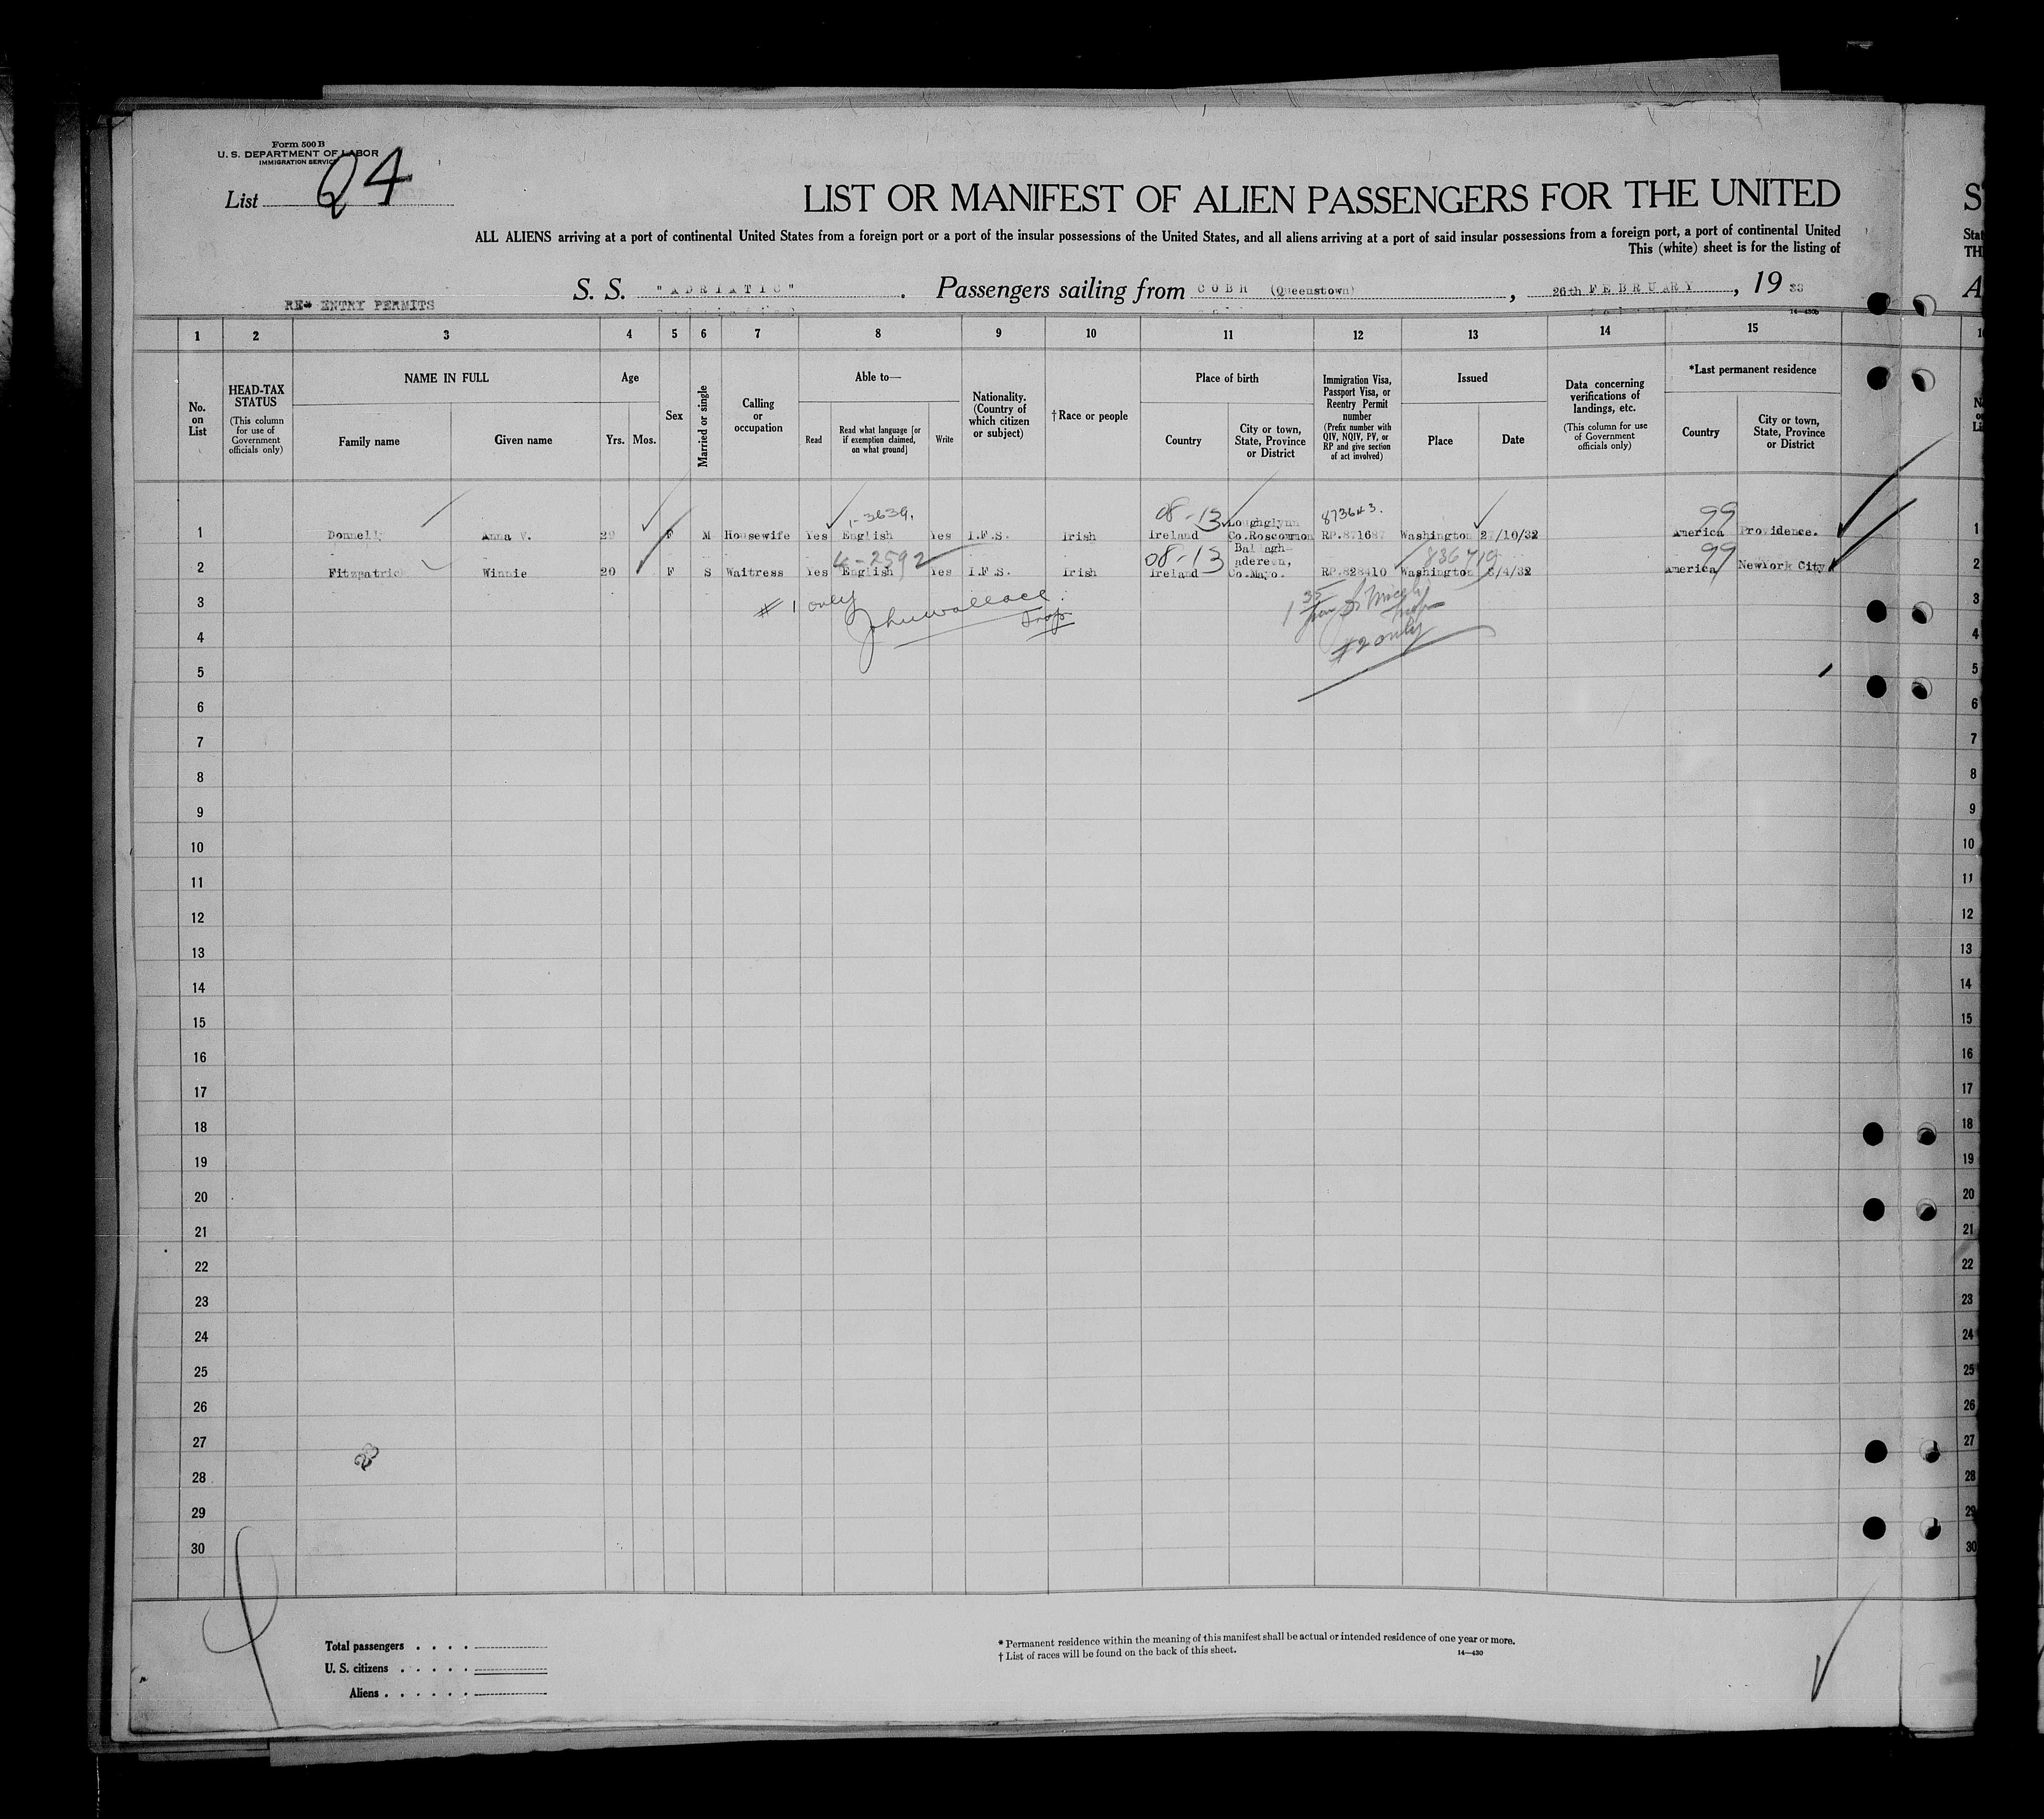 Form 500 B
U. S. DEPARTMENT OF LABOR
IMMIGRATION SERVICE
List 24
LIST OR MANIFEST OF ALIEN PASSENGERS FOR THE UNITED
S
ALL ALIENS arriving at a port of continental United States from a foreign port or a port of the insular possessions of the United States, and all aliens arriving at a port of said insular possessions from a foreign port, a port of continental United
Stat
This (white) sheet is for the listing of
TH
S. S. "ADRIATIC". Passengers sailing from COBH (Queenstown), 26th FEBRUARY, 1933
A
RE* ENTRY PERMITS
14—430b
1 2 3 4 5 6 7 8 9 10 11 12 13 14 15
No. on List
HEAD-TAX STATUS
(This column for use of Government officials only)
NAME IN FULL
Family name
Given name
Age
Yrs. Mos.
Sex
Married or single
Calling or occupation
Able to—
Read
Read what language [or if exemption claimed, on what ground]
Write
Nationality. (Country of which citizen or subject)
†Race or people
Place of birth
Country
City or town, State, Province or District
Immigration Visa, Passport Visa, or Reentry Permit number
(Prefix number with QIV, NQIV, PV, or RP and give section of act involved)
Issued
Place
Date
Data concerning verifications of landings, etc.
(This column for use of Government officials only)
*Last permanent residence
Country
City or town, State, Province or District
1-3639. 08-13 Loughglynn 873643. 99
1 Donnelly Anna V. 29 F M Housewife Yes English Yes I.F.S. Irish Ireland Co.Roscommon RP.871687 Washington /10/32 America Providence. 1
4-2592 08-13 Ballagh- 836719 99
adereen,
2 Fitzpatrick Winnie 20 F S Waitress Yes English Yes I.F.S. Irish Ireland Co.Mayo. RP.828410 Washington /4/32 America NewYork City 2
3 # 1 only John Wallace 3
4 #2 only 4
5 5
6 6
7 7
8 8
9 9
10 10
11 11
12 12
13 13
14 14
15 15
16 16
17 17
18 18
19 19
20 20
21 21
22 22
23 23
24 24
25 25
26 26
27 27
28 28
29 29
30 30
Total passengers . . . .
U. S. citizens . . . . .
Aliens . . . . . .
* Permanent residence within the meaning of this manifest shall be actual or intended residence of one year or more.
† List of races will be found on the back of this sheet.
14—430